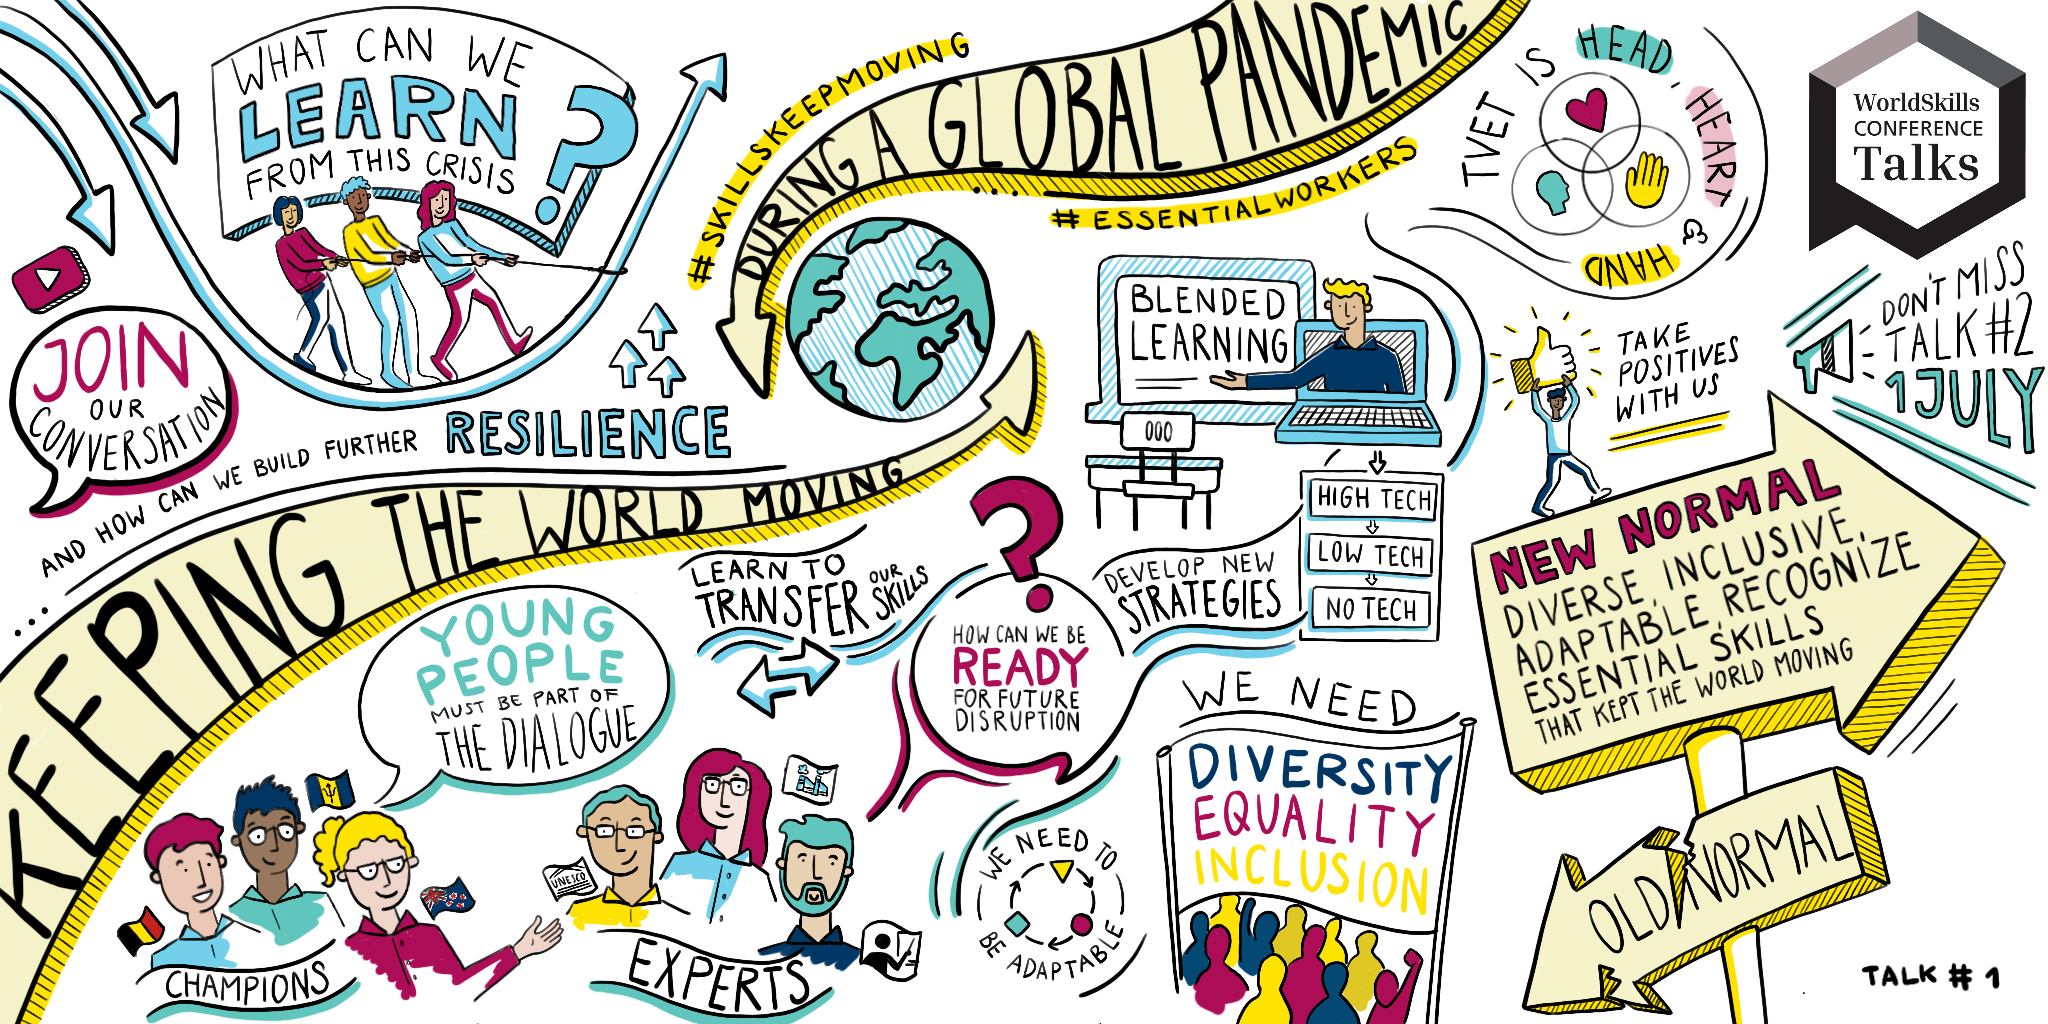 WHAT CAN WE
LEARN
FROM THIS CRISIS
?
JOIN
OUR
CONVERSATION
AND HOW CAN WE BUILD FURTHER
RESILIENCE
KEEPING THE WORLD MOVING
DURING A GLOBAL PANDEMIC
#SKILLSKEEPMOVING
#ESSENTIALWORKERS
TVET IS HEAD, HEART & HAND
WorldSkills
CONFERENCE
Talks
DON'T MISS
TALK #2
1 JULY
BLENDED
LEARNING
HIGH TECH
LOW TECH
NO TECH
TAKE
POSITIVES
WITH US
NEW NORMAL
DIVERSE, INCLUSIVE,
ADAPTABLE, RECOGNIZE
ESSENTIAL SKILLS
THAT KEPT THE WORLD MOVING
OLD NORMAL
LEARN TO
TRANSFER
OUR
SKILLS
?
HOW CAN WE BE
READY
FOR FUTURE
DISRUPTION
DEVELOP NEW
STRATEGIES
YOUNG
PEOPLE
MUST BE PART OF
THE DIALOGUE
CHAMPIONS
UNESCO
EXPERTS
WE NEED TO
BE ADAPTABLE
WE NEED
DIVERSITY
EQUALITY
INCLUSION
TALK #1